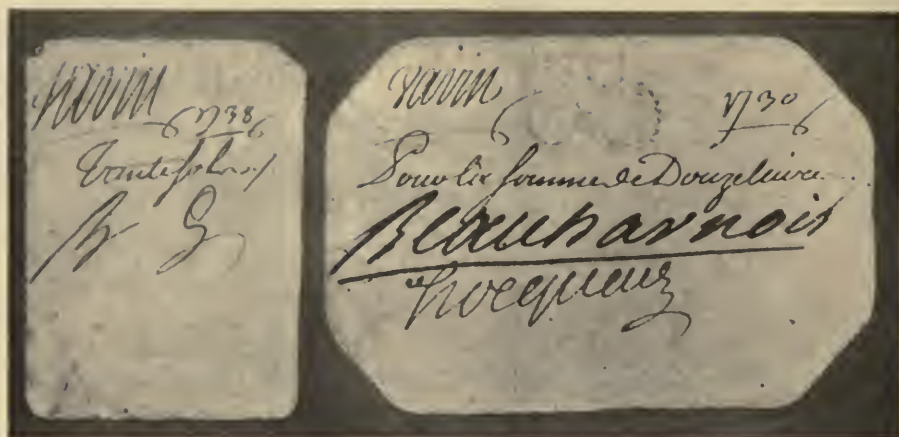 Varin
1738
Trente sols
B
Varin 1730
Pour la somme de Douze livres
Beauharnois
hocquart